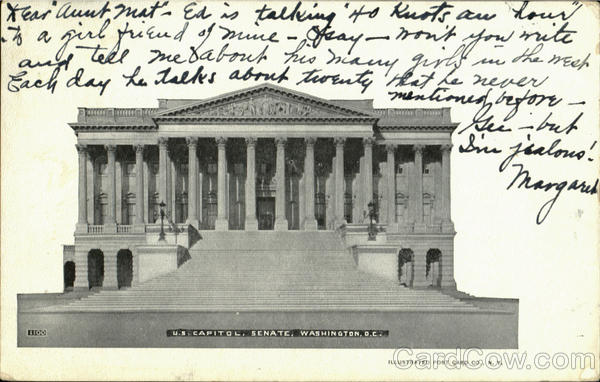 Dear "Aunt Mat" - Ed is talking "40 Knots an hour"
to a girl friend of mine - Say - won't you write
and tell me about his many girls in the west
Each day he talks about twenty that he never
mentioned before -
Gee - but
I'm jealous!
Margaret
1100
U.S. CAPITOL, SENATE, WASHINGTON, D.C.
ILLUSTRATED POST CARD CO., N. Y.
CardCow.com